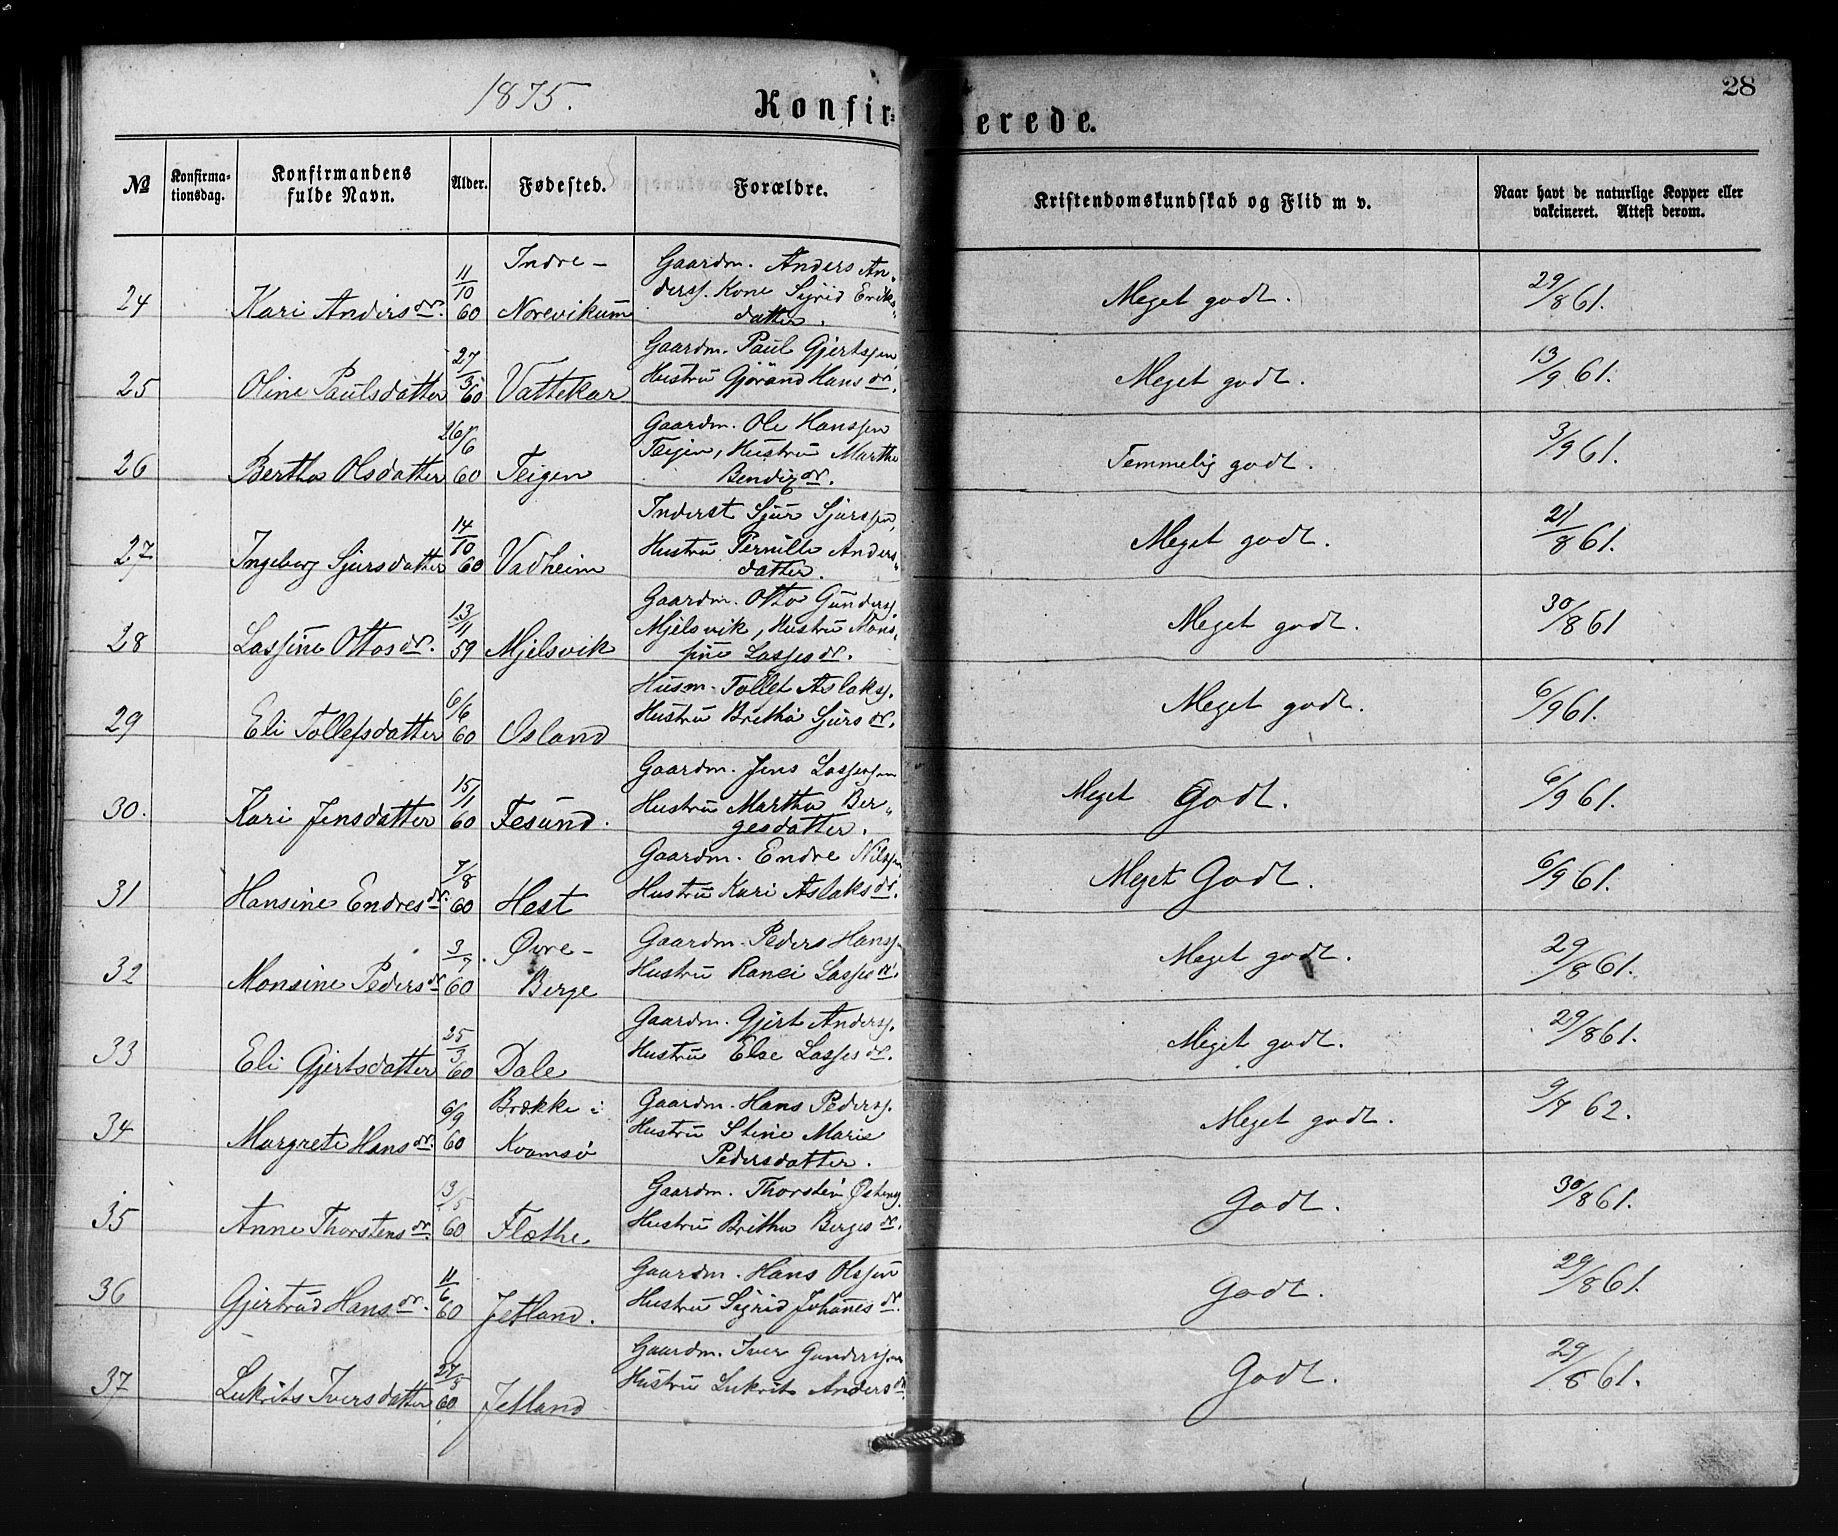 1875.
28
Konfir=
erede.
№ Konfirma-tionsdag. Konfirmandens fulde Navn. Alder. Fødested. Forældre. Kristendomskundskab og Flid m v. Naar havt de naturlige Kopper eller vakcineret. Attest derom.
24 Kari Andersdr. 11/10 60 Indre-Norevikum Gaardm. Anders An-derss. Kone Sigrid Eriks-datter. Meget godt. 29/8 61.
25 Oline Paulsdatter 27/3 60 Vattekar Gaardm. Paul Gjertssen, Hustru Gjörand Hansdr. Meget godt. 13/9 61.
26 Bertha Olsdatter 26/6 60 Teigen Gaardm. Ole Hanssen Teigen, Hustru Martha Bendixdr. Temmelig godt. 3/9 61.
27 Ingeborg Sjursdatter 14/10 60 Vadheim Inderst Sjur Sjurssen, Hustru Pernille Anders-datter. Meget godt. 21/8 61.
28 Lassine Ottosdr. 13/11 59 Mjelsvik Gaardm. Otto Gunderss. Mjelsvik, Hustru Mons-sine Lassesdr. Meget godt. 30/8 61
29 Eli Tollefsdatter 6/6 60 Osland Husm. Tollef Aslakss. Hustru Britha Sjursdr. Meget godt. 6/9 61.
30. Kari Jensdatter 15/1 60 Fesund. Gaardm. Jens Lassessen Hustru Martha Ber-gesdatter. Meget Godt. 6/9 61.
31 Hansine Endresdr. 7/8 60 Hest Gaardm. Endre Nilssen, Hustru Kari Aslaksdr. Meget Godt. 6/9 61.
32 Monsine Pedersdr. 3/7 60 Øvre-Berge Gaardm. Peders Hanss. Hustru Ranei Lassesdr. Meget godt. 29/8 61.
33 Eli Gjertsdatter 25/3 60 Dale Gaardm. Gjert Anderss. Hustru Else Lassesdr. Meget godt. 29/8 61.
34 Margrete Hansdr. 6/9 60 Brække i Kvamsö Gaardm. Hans Pederss. Hustru Stine Marie Pedersdatter. Meget godt. 9/7 62.
35 Anne Thorstensdr. 13/5 60 Flæthe Gaardm. Thorstein Østens. Hustru Britha Bergesdr. Godt. 30/8 61.
36 Gjertrud Hansdr. 11/6 60 Jetland. Gaardm. Hans Olssen Hustru Sigrid Johanesdr. Godt. 29/8 61.
37 Lukrits Iversdatter 27/3 60 Jetland Gaardm. Iver Gunderssen Hustru Lukrits Andersdr. Godt. 29/8 61.